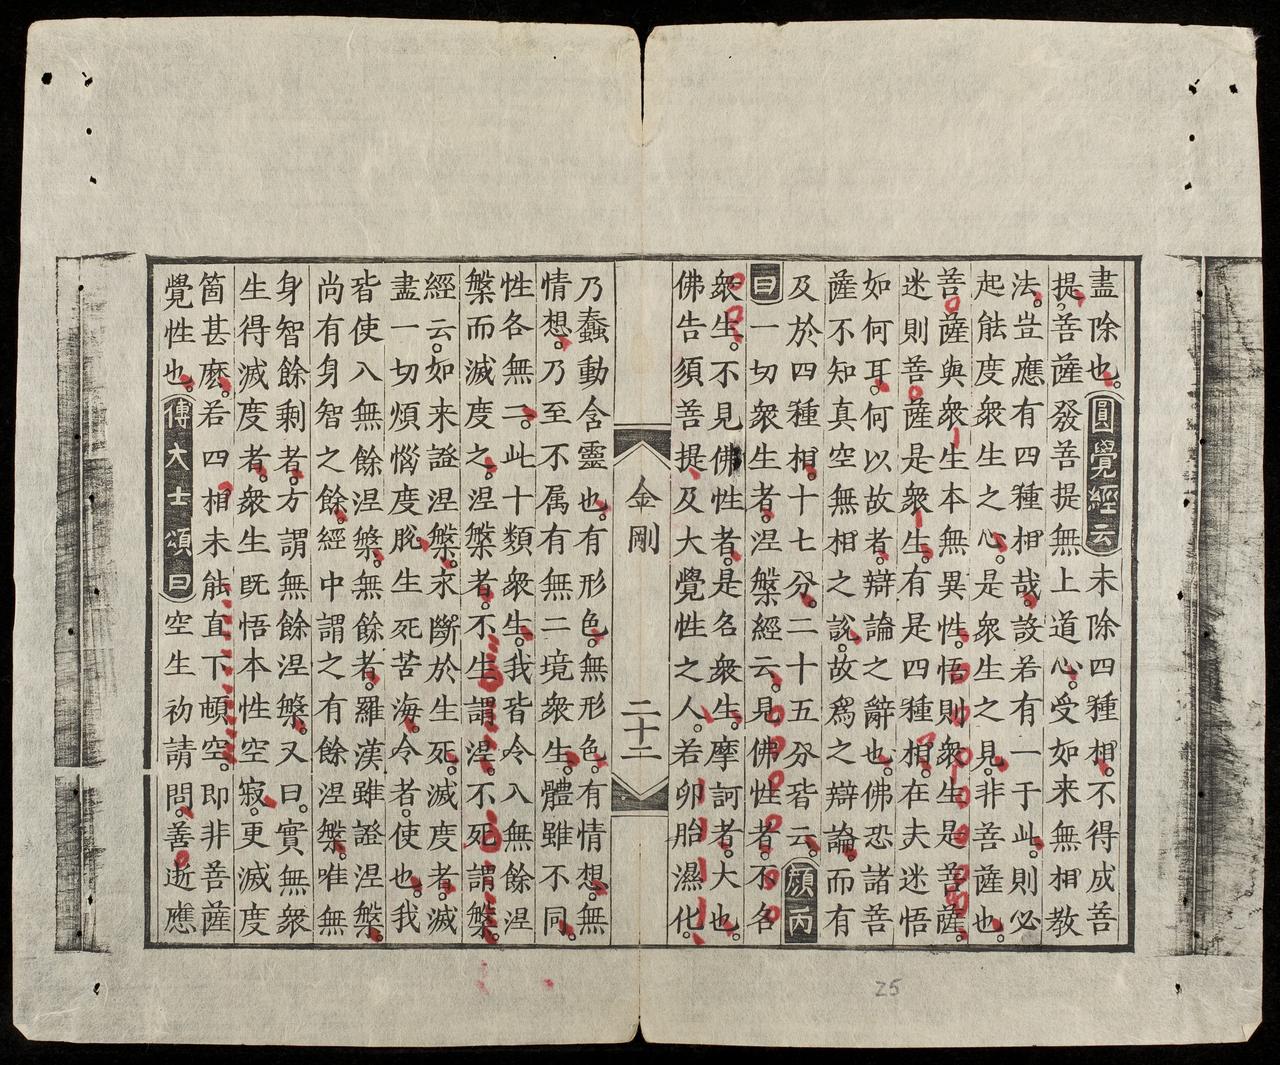 盡除也。圓覺經云未除四種相。不得成菩
提。菩薩發菩提無上道心。受如来無相教
法。豈應有四種相哉。設若有一于此。則必
起能度衆生之心。是衆生之見。非菩薩也。
菩薩與衆生本無異性。悟則衆生是菩薩。
迷則菩薩是衆生。有是四種相。在夫迷悟
如何耳。何以故者。辯論之辭也。佛恐諸菩
薩不知真空無相之說。故爲之辯論。而有
及於四種相。十七分。二十五分皆云。顔丙
曰一切衆生者。涅槃經云。見佛性者。不名
衆生。不見佛性者。是名衆生。摩訶者。大也。
佛告須菩提。及大覺性之人。若卵胎濕化。
金剛
二十二
乃蠢動含靈也。有形色。無形色。有情想。無
情想。乃至不属有無二境衆生。體雖不同。
性各無二。此十類衆生。我皆令入無餘涅
槃而滅度之。涅槃者。不生謂涅。不死謂槃。
經云。如来證涅槃。永斷於生死。滅度者。滅
盡一切煩惱度脫生死苦海。令者。使也。我
皆使入無餘涅槃。無餘者。羅漢雖證涅槃。
尚有身智之餘。經中謂之有餘涅槃。唯無
身智餘剩者。方謂無餘涅槃。又曰。實無衆
生得滅度者。衆生既悟本性空寂。更滅度
箇甚麽。若四相未能直下頓空。即非菩薩
覺性也。傅大士頌曰空生初請問。善逝應